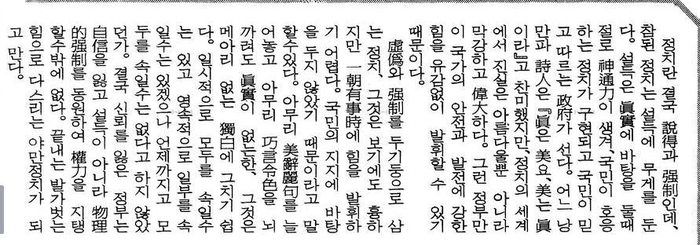 정치란 결국 說得과 强制인데,
참된 정치는 설득에 무게를 둔
다. 설득은 眞實에 바탕을 둘때
절로 神通力이 생겨, 국민이 호응
하는 정치가 구현되고 국민이 믿
고 따르는 政府가 선다. 어느 낭
만파 詩人은 『眞은 美요, 美는 眞
이라』고 찬미했지만, 정치의 세계
에서 진실은 아름다울뿐 아니라
막강하고 偉大하다. 그런 정부만
이 국가의 안전과 발전에 강한
힘을 유감없이 발휘할 수 있기
때문이다.
虛僞와 强制를 두기둥으로 삼
는 정치, 그것은 보기에도 흉하
지만 一朝有事時에 힘을 발휘하
기 어렵다. 국민의 지지에 바탕
을 두지 않았기 때문이라고 말
할수있다. 아무리 美辭麗句를 늘
어놓고 아무리 巧言令色을 뇌
까려도 眞實이 없는한, 그것은
메아리 없는 獨白에 그치기 쉽
다. 일시적으로 모두를 속일수
는 있고 영속적으로 일부를 속
일수는 있겠으나 언제까지고 모
두를 속일수는 없다고 하지 않았
던가. 결국 신뢰를 잃은 정부는
自信을 잃고 설득이 아니라 物理
的强制를 동원하여 權力을 지탱
할수밖에 없다. 끝내는 발가벗는
힘으로 다스리는 야만정치가 되
고 만다.